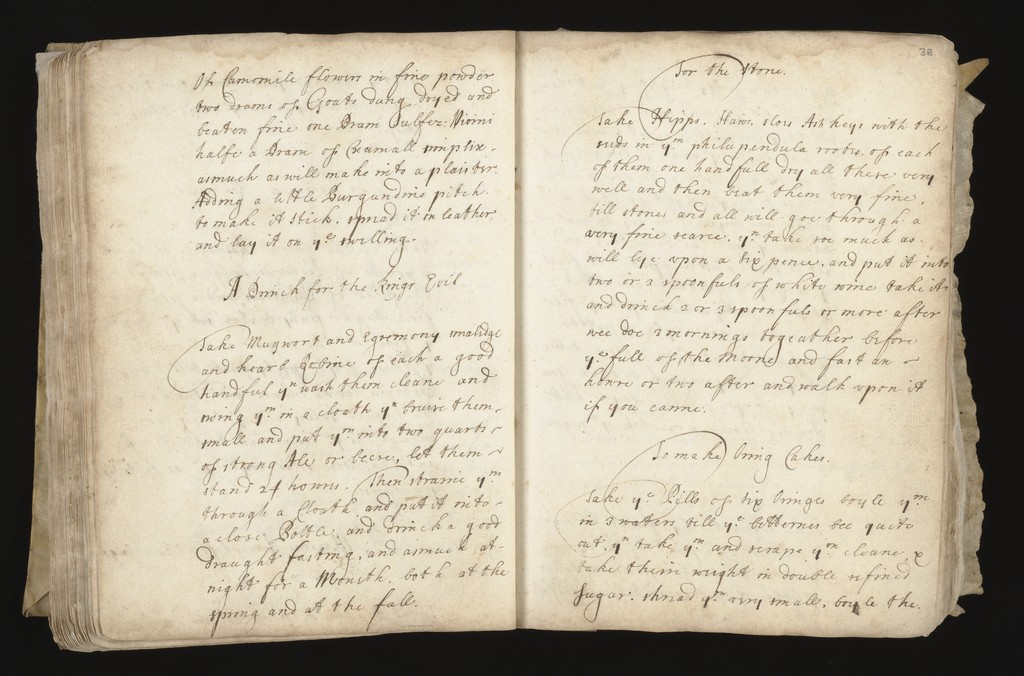 Of Camomile flowers in fine powder
two drams of Goats dung dryed and
beaten fine one Dram Sulfer: Vivini
halfe a Dram of Cramall simplix
asmuch as will make into a plaister
Adding a little Burgundine pitch
to make it stick. spread it on leather
and lay it on ye swelling.
A Drinck for the kings Evil
Take Mugwort and Egremony
and hearb Robine of each a good
handful yn wash them cleane and
wring ym in a cloath yn bruise them
small and put ym into two quarts
of strong Ale or beere, let them
stand 24 howrs. Then straine ym
through a Cloath and put it into
a close Bottle, and drinck a good
draught fasting, and asmuch at
night for a Month. both at the
spring and at the fall.
38
For the Stone.
Take Hipps. Haws. slows Ash keys with the
seeds in ym philupendula roots. of each
of them one handfull dry all these very
well and then beat them very fine.
till stones and all will goe through a
very fine searce. yn take soe much as
will lye upon a six pence. and put it into
two or 3 spoonfuls of white wine take it
and drinck 2 or 3 spoonfuls or more after
wee doe 3 mornings togeather before
ye full of the Moone and fast an
houre or two after and walk upon it
if you canne.
To make Oring Cakes.
Take ye Pills of six oringes boyle ym
in 3 waters till ye bitternes bee quite
out. yn take ym and scrape ym cleane &
take theire weight in double refined
sugar. shread ym very small. boyle the